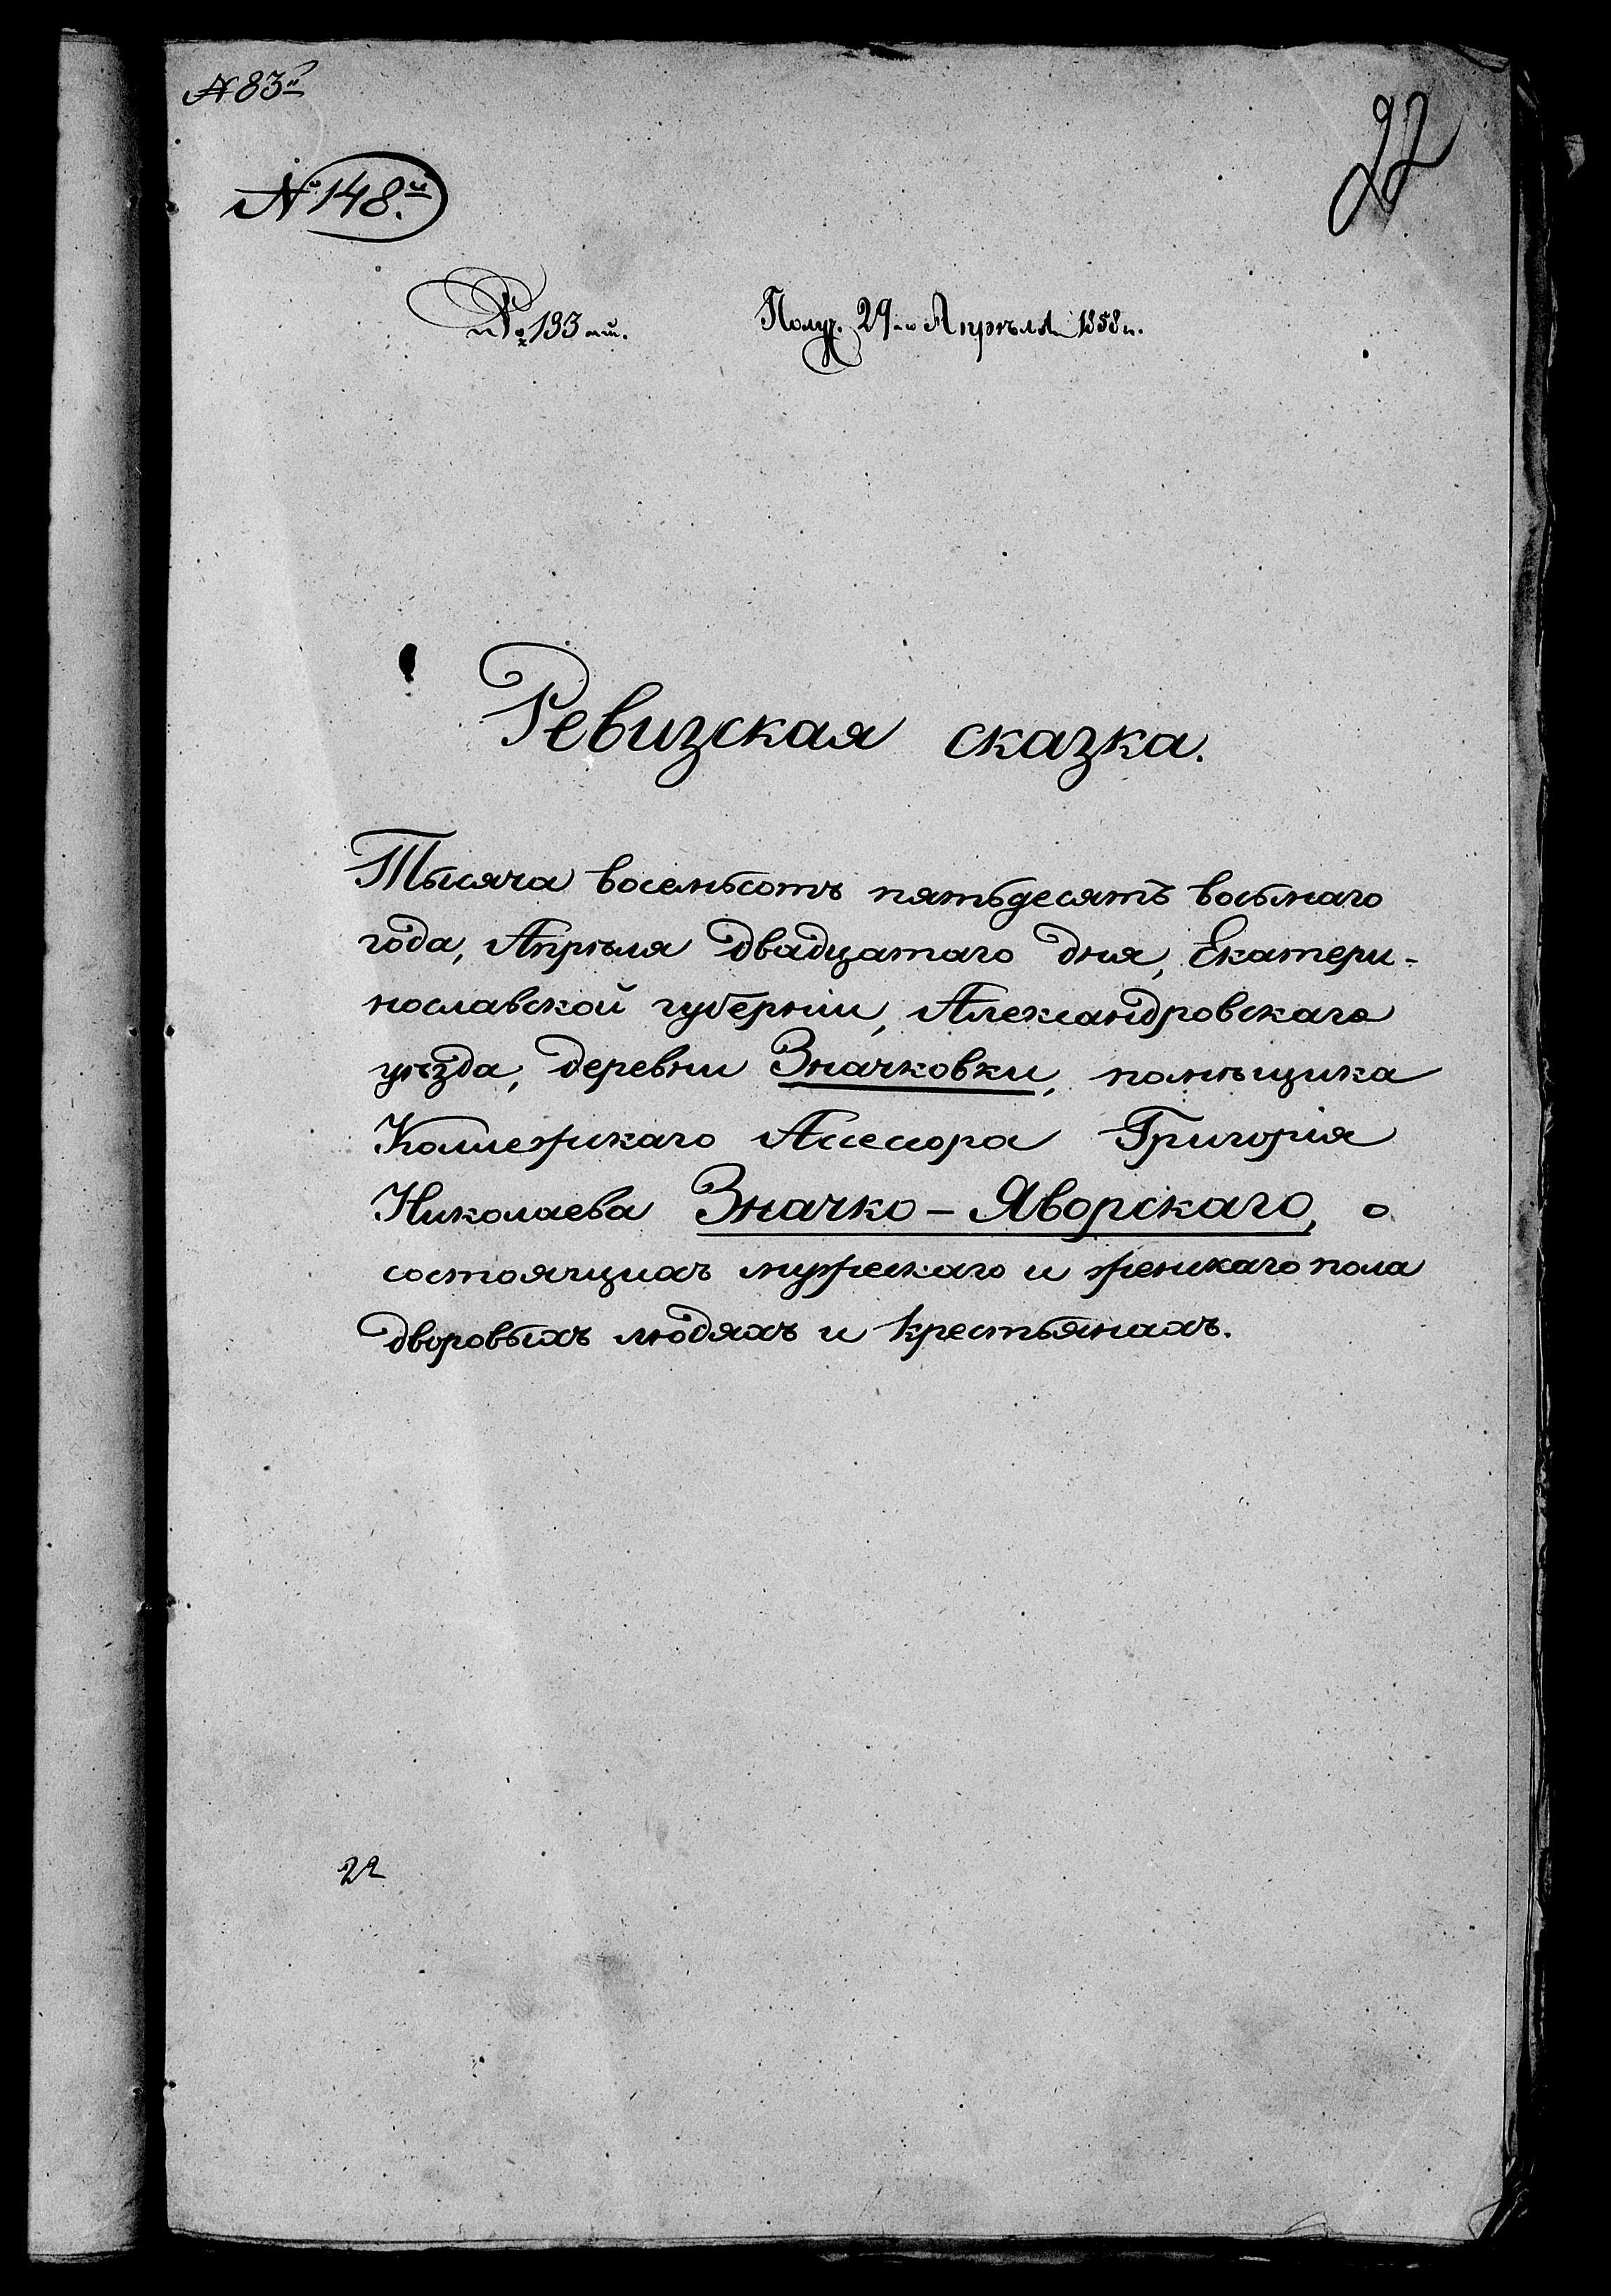 № 83й
22
№ 148.й
№ 193 ый.
Получ. 29го Апрѣля 1858 г.
Ревизская сказка.
Тысяча восемьсотъ пятьдесятъ восьмаго
года, Апрѣля двадцатаго дня, Екатери-
нославской губерніи, Александровскаго
уѣзда, деревни Значковки, помѣщика
Коллежскаго Ассесора Григорія
Николаева Значко-Яворскаго, о
состоящихъ мужескаго и женскаго пола
дворовыхъ людяхъ и крестьянахъ.
22